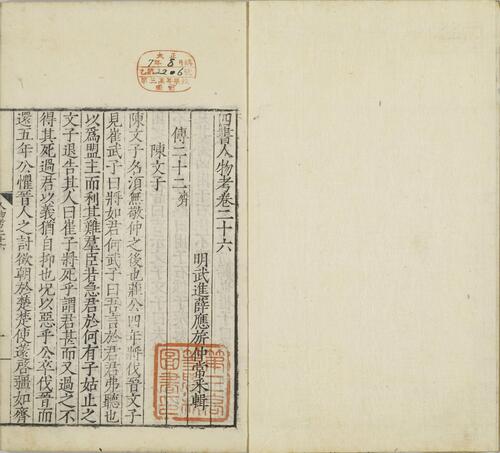 大正
7年8月購
2206
四書人物考卷二十六
明武進薛應旂仲常采輯
傳二十二齊
陳文子
陳文子名須無敬仲之後也莊公四年將伐晉文子
見崔武子曰將如君何武子曰吾言於君君弗聽也
以爲盟主而利其難羣臣若急君於何有子姑止之
文子退告其人曰崔子將死乎謂君甚而又過之不
得其死過君以義猶自抑也况以惡乎公卒伐晉而
還五年公懼晉人之討欲朝於楚楚使薳啓疆如齊